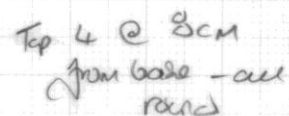 Top 4 @ 8cm
from base - all
round